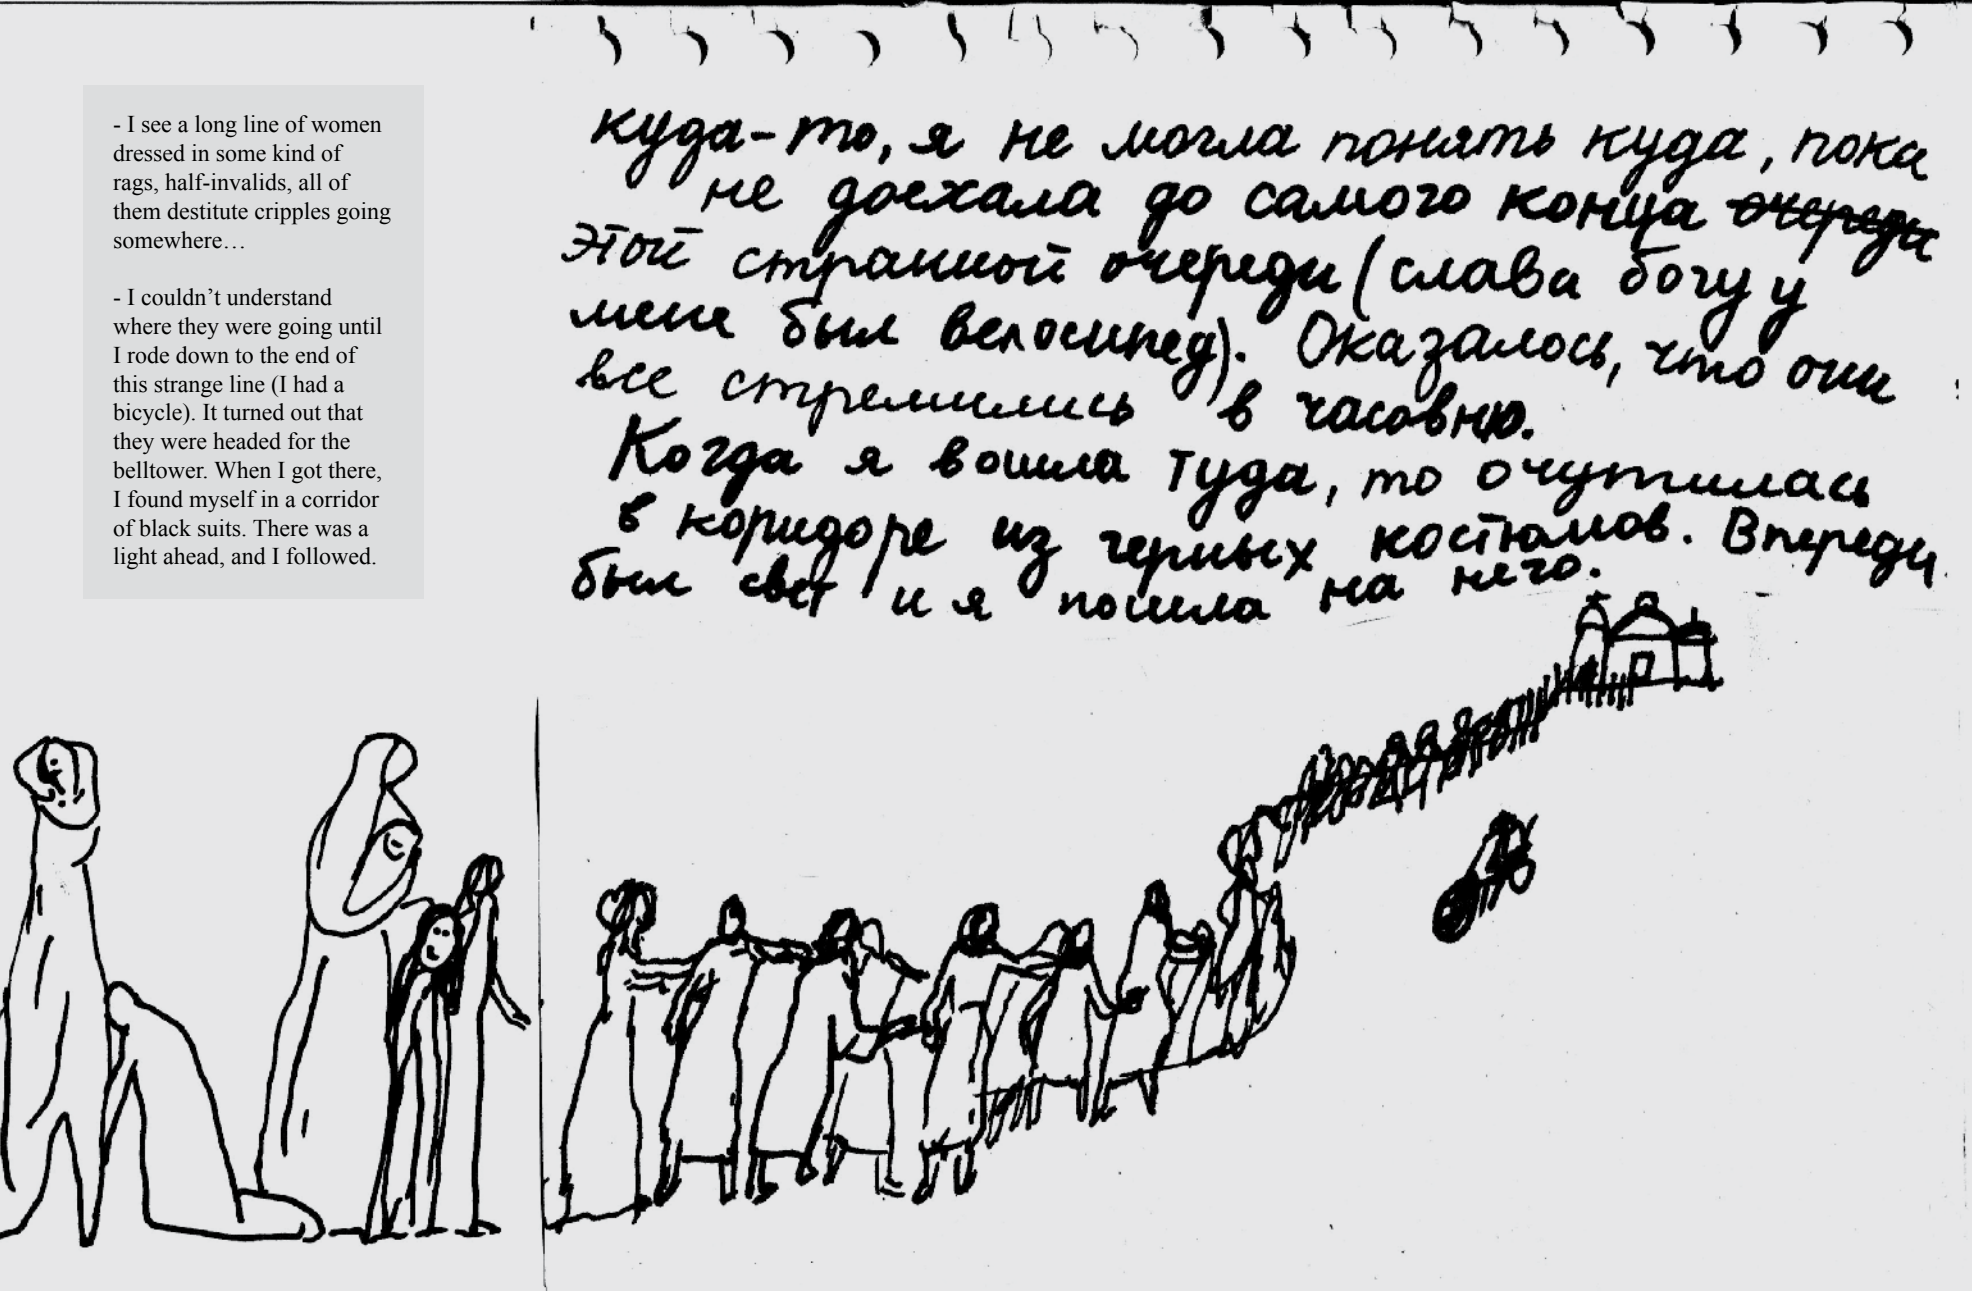 - I see a long line of women
dressed in some kind of
rags, half-invalids, all of
them destitute cripples going
somewhere…
- I couldn’t understand
where they were going until
I rode down to the end of
this strange line (I had a
bicycle). It turned out that
they were headed for the
belltower. When I got there,
I found myself in a corridor
of black suits. There was a
light ahead, and I followed.
куда-то, я не могла понять куда, пока
не доехала до самого конца очереди
этой странной очереди (слава богу у
меня был велосипед). Оказалось, что они
все стремились в часовню.
Когда я вошла туда, то очутилась
в коридоре из черных костюмов. Впереди
был свет и я пошла на него.